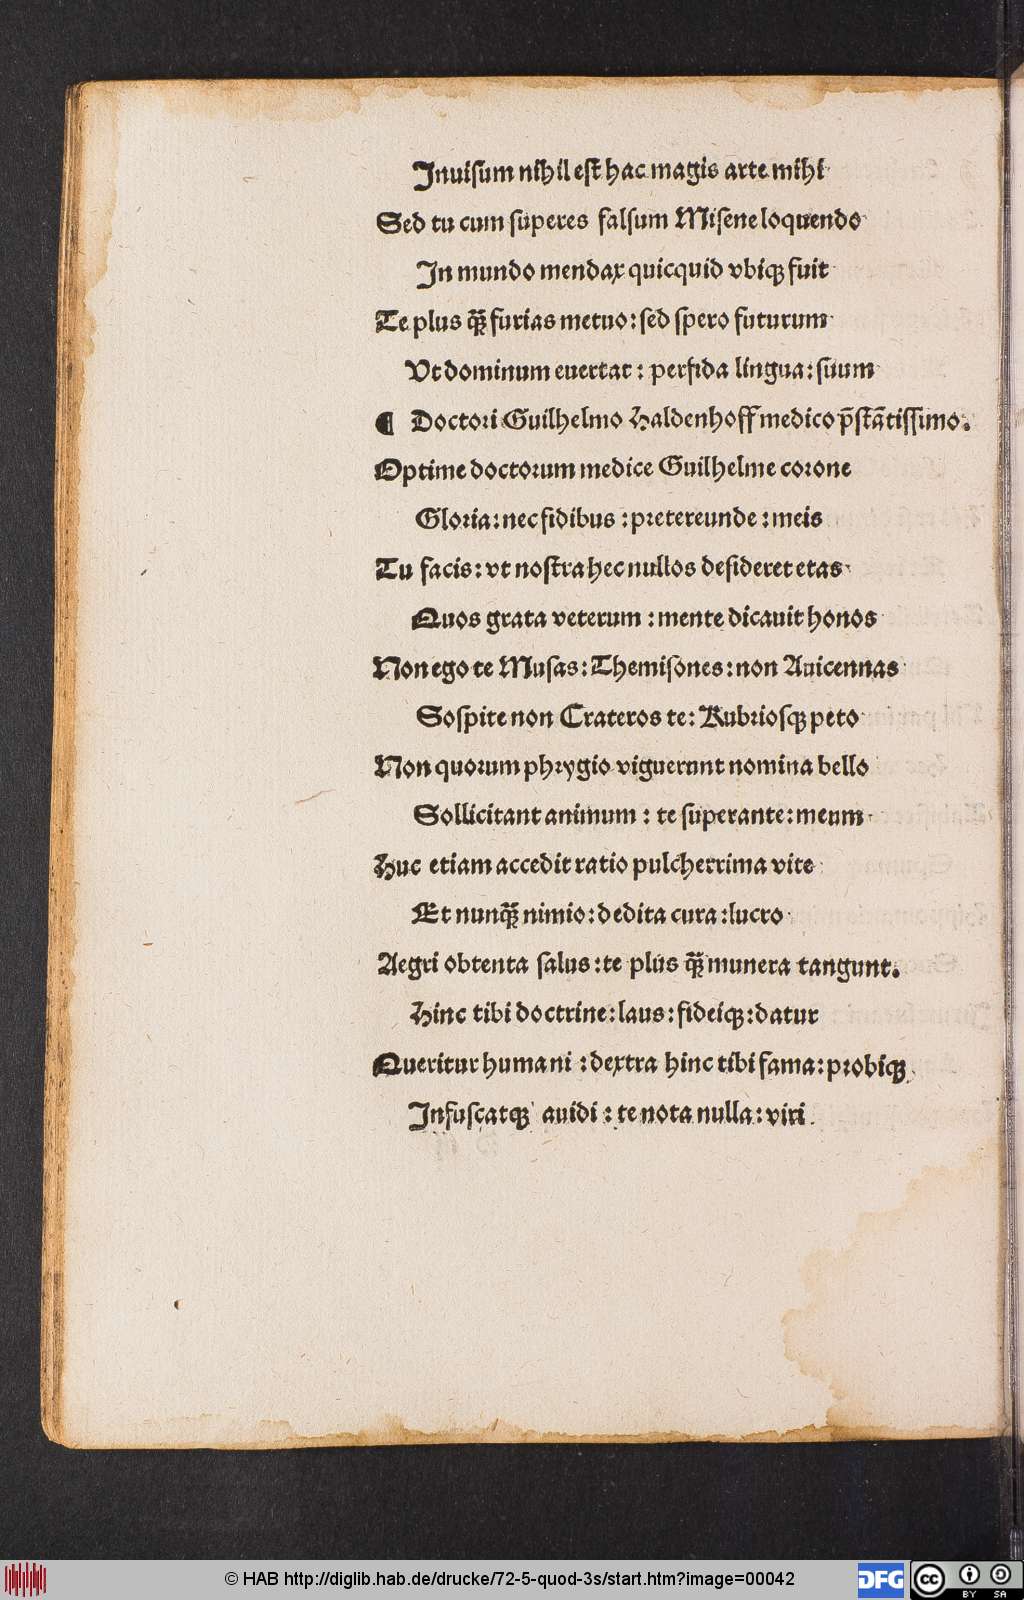 Inuiſum nihil eſt hac magis arte mihi
Sed tu cum ſuperes falſum Miſene loquendo
In mundo mendax quicquid vbiqꝫ fuit
Te plus qꝫ̄ furias metuo: ſed ſpero futurum
Vt dominum euertat: perfida lingua: ſuum
¶ Doctoꝛi Guilhelmo Haldenhoff medico p̄ſtātiſſimo.
Optime doctoꝛum medice Guilhelme coꝛone
Gloꝛia: nec fidibus: pꝛetereunde: meis
Tu facis: vt noſtra hec nullos deſideret etas
Quos grata veterum: mente dicauit honos
Non ego te Muſas: Themiſones: non Auicennas
Soſpite non Crateros te: Rubꝛioſqꝫ peto
Non quoꝛum phꝛygio viguerunt nomina bello
Sollicitant animum: te ſuperante: meum
Huc etiam accedit ratio pulcherrima vite
Et nunqꝫ̄ nimio: dedita cura: lucro
Aegri obtenta ſalus: te plus qꝫ̄ munera tangunt.
Hinc tibi doctrine: laus: fideiqꝫ: datur
Queritur humani: dextra hinc tibi fama: pꝛobiqꝫ
Infuſcatqꝫ auidi: te nota nulla: viri.
© HAB http://diglib.hab.de/drucke/72-5-quod-3s/start.htm?image=00042
DFG
cc BY SA